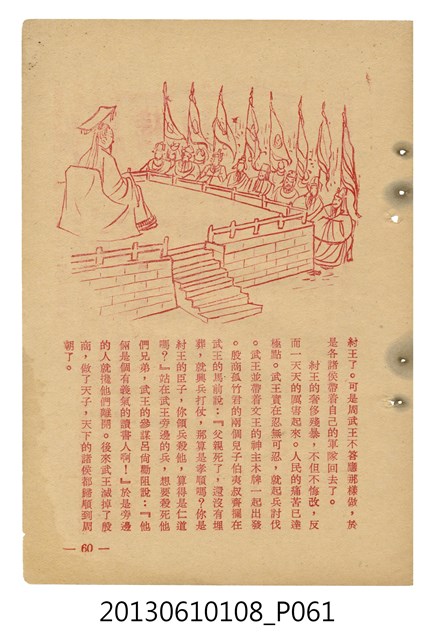 紂王了。可是周武王不答應那樣做，於
是各諸侯帶着自己的軍隊回去了。
紂王的奢侈殘暴，不但不悔改，反
而一天天的厲害起來。人民的痛苦已達
極點。武王實在忍無可忍，就起兵討伐
。武王並帶着文王的神主木牌一起出發
。殷商孤竹君的兩個兒子伯夷叔齊攔在
武王的馬前說：『父親死了，還沒有埋
葬，就興兵打仗，那算是孝順嗎？你是
紂王的臣子，你領兵殺他，算得是仁道
嗎？』站在武王旁邊的兵，想要殺死他
們兄弟，武王的參謀呂尚勸阻說：『他
倆是個有義氣的讀書人啊！』於是旁邊
的人就攙他們離開。後來武王滅掉了殷
商，做了天子，天下的諸侯都歸順到周
朝了。
— 60 —
20130610108_P061